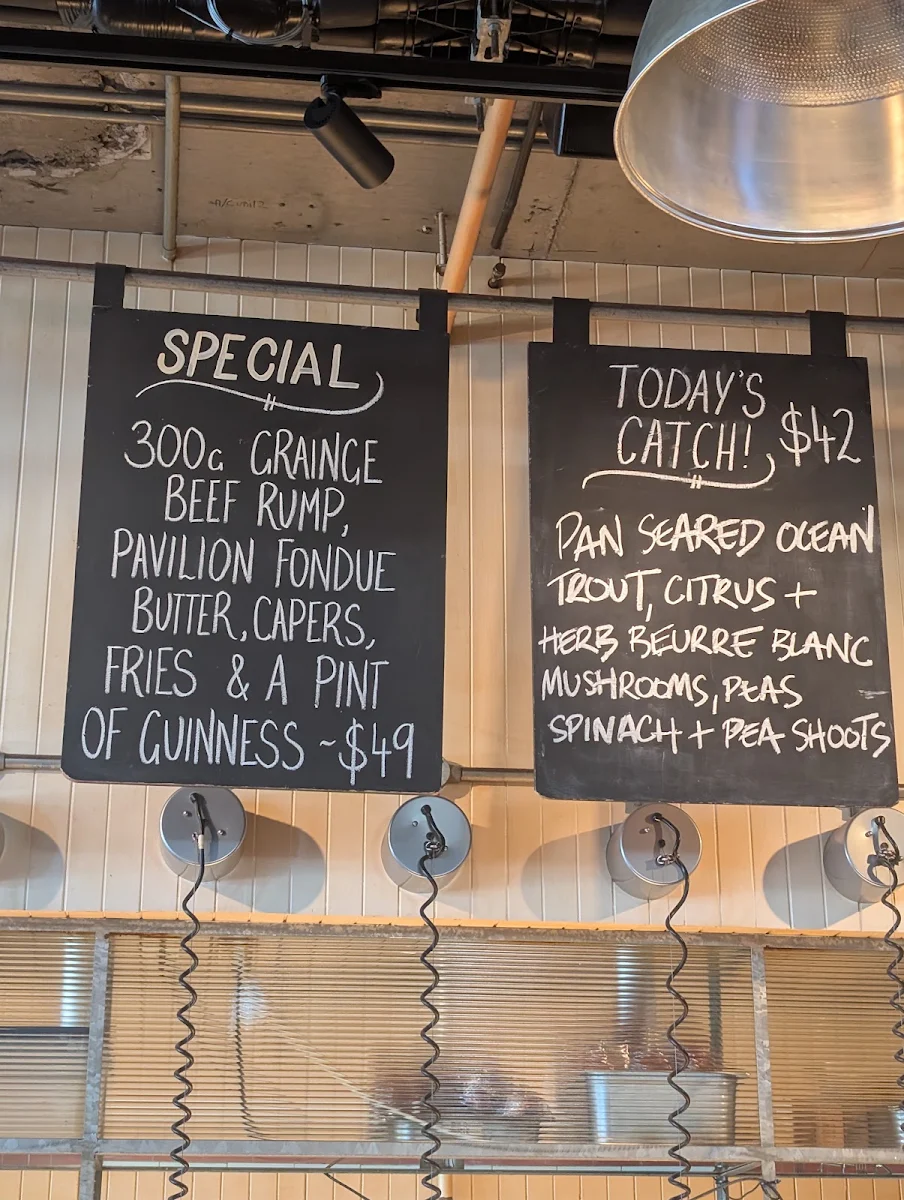 SPECIAL
300G GRAINGE
BEEF RUMP,
PAVILION FONDUE
BUTTER, CAPERS,
FRIES & A PINT
OF GUINNESS ~$49
TODAY'S
CATCH! $42
PAN SEARED OCEAN
TROUT, CITRUS +
HERB BEURRE BLANC
MUSHROOMS, PEAS
SPINACH + PEA SHOOTS